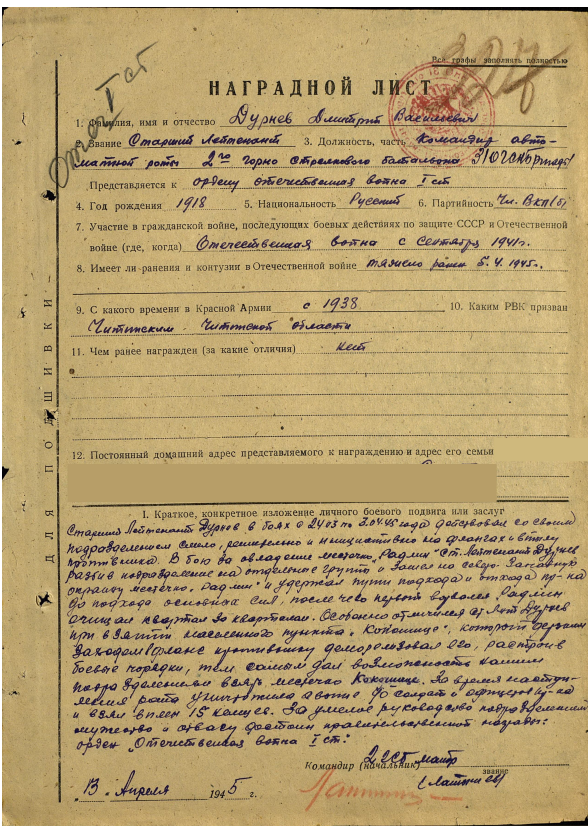 Отеч I ст
Все графы заполнять полностью
НАГРАДНОЙ ЛИСТ
1. Фамилия, имя и отчество Дурнев Дмитрий Васильевич
2. Звание Старший Лейтенант 3. Должность, часть Командир авто-
матной роты 2го горно стрелкового батальона
Представляется к ордену отечественная вогна I ст
4. Год рождения 1918 5. Национальность Русский 6. Партийность Чл. ВКП(б)
7. Участие в гражданской войне, последующих боевых действиях по защите СССР и Отечественной
войне (где, когда) Отечественная вогна с сентября 1941г.
8. Имеет ли ранения и контузии в Отечественной войне тяжело ранен 5.4.1945г.
9. С какого времени в Красной Армии с 1938 10. Каким РВК призван
Читинским Читинской области
11. Чем ранее награжден (за какие отличия) нет
12. Постоянный домашний адрес представляемого к награждению и адрес его семьи
ДЛЯ ПОДШИВКИ
I. Краткое, конкретное изложение личного боевого подвига или заслуг
Старший Лейтенант Дурнев в боях с 24.03 по 3.04.45 года действовал со своим
подразделением смело, решительно и инициативно на флангах и в тылу
противника. В бою за овладение местечко „Радлин" Ст. Лейтенант Дурнев
разбив подразделение на отдельные группы и зашел на северо-западную
окраину местечко „Радлин" и удержал пути подхода и отхода пр-ка
до подхода основных сил, после чего первой ворвался Радлин
очищал квартал за кварталом. Особенно отличился ст. Лет. Дурнев
при взятии населенного пункта „Кокошице", который
заходом фланг противнику деморализовал его, расстроив
боевые порядки, тем самым дал возможность нашим
подразделениям взять местечко Кокошице. За время наступ-
ления рота уничтожила солдат и офицеров пр-ка
и взяли в плен 15 немцев. За умелое руководство подразделением
мужество и отвагу достоин правительственной награды:
орден „Отечественная вогна I ст."
Командир (начальник) 2 ГСБ маиор
звание
(Латышев)
13 Апреля 1945 г.